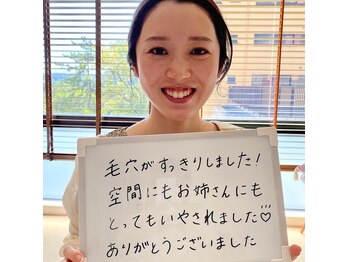 毛穴がすっきりしました!
空間にもお姉さんにも
とってもいやされました♡
ありがとうございました